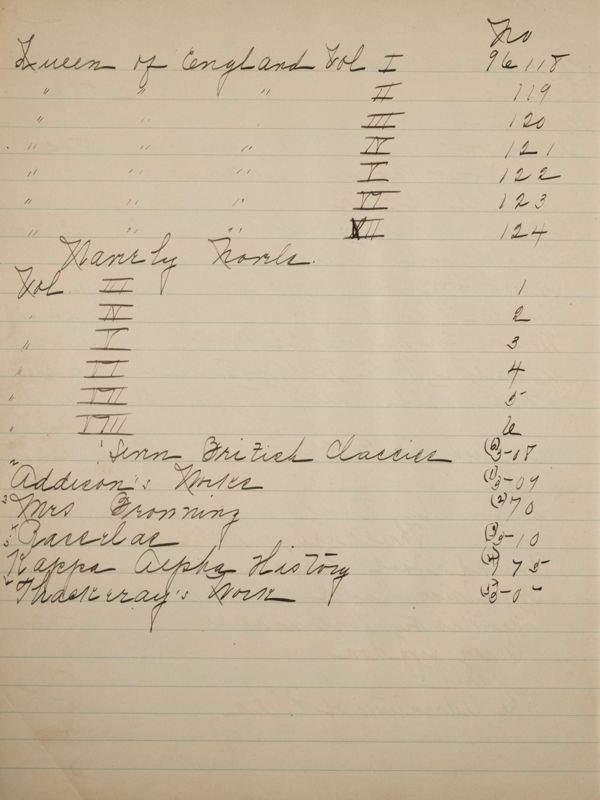 No
Queen of England Vol I 96118
" " " II 119
" " III 120
" " " IV 121
" " " V 122
" " " VI 123
" " " VII 124
Waverly Novels.
Vol III 1
" IV 2
" V 3
VI 4
" VII 5
" VIII 6
British Classics (6) 5-18
Addison's Works (1) 5-09
Mrs Browning (2) 70
Rasselas (3) 5-10
Kappa Alpha History (4) 75
Thackeray's Work (5)